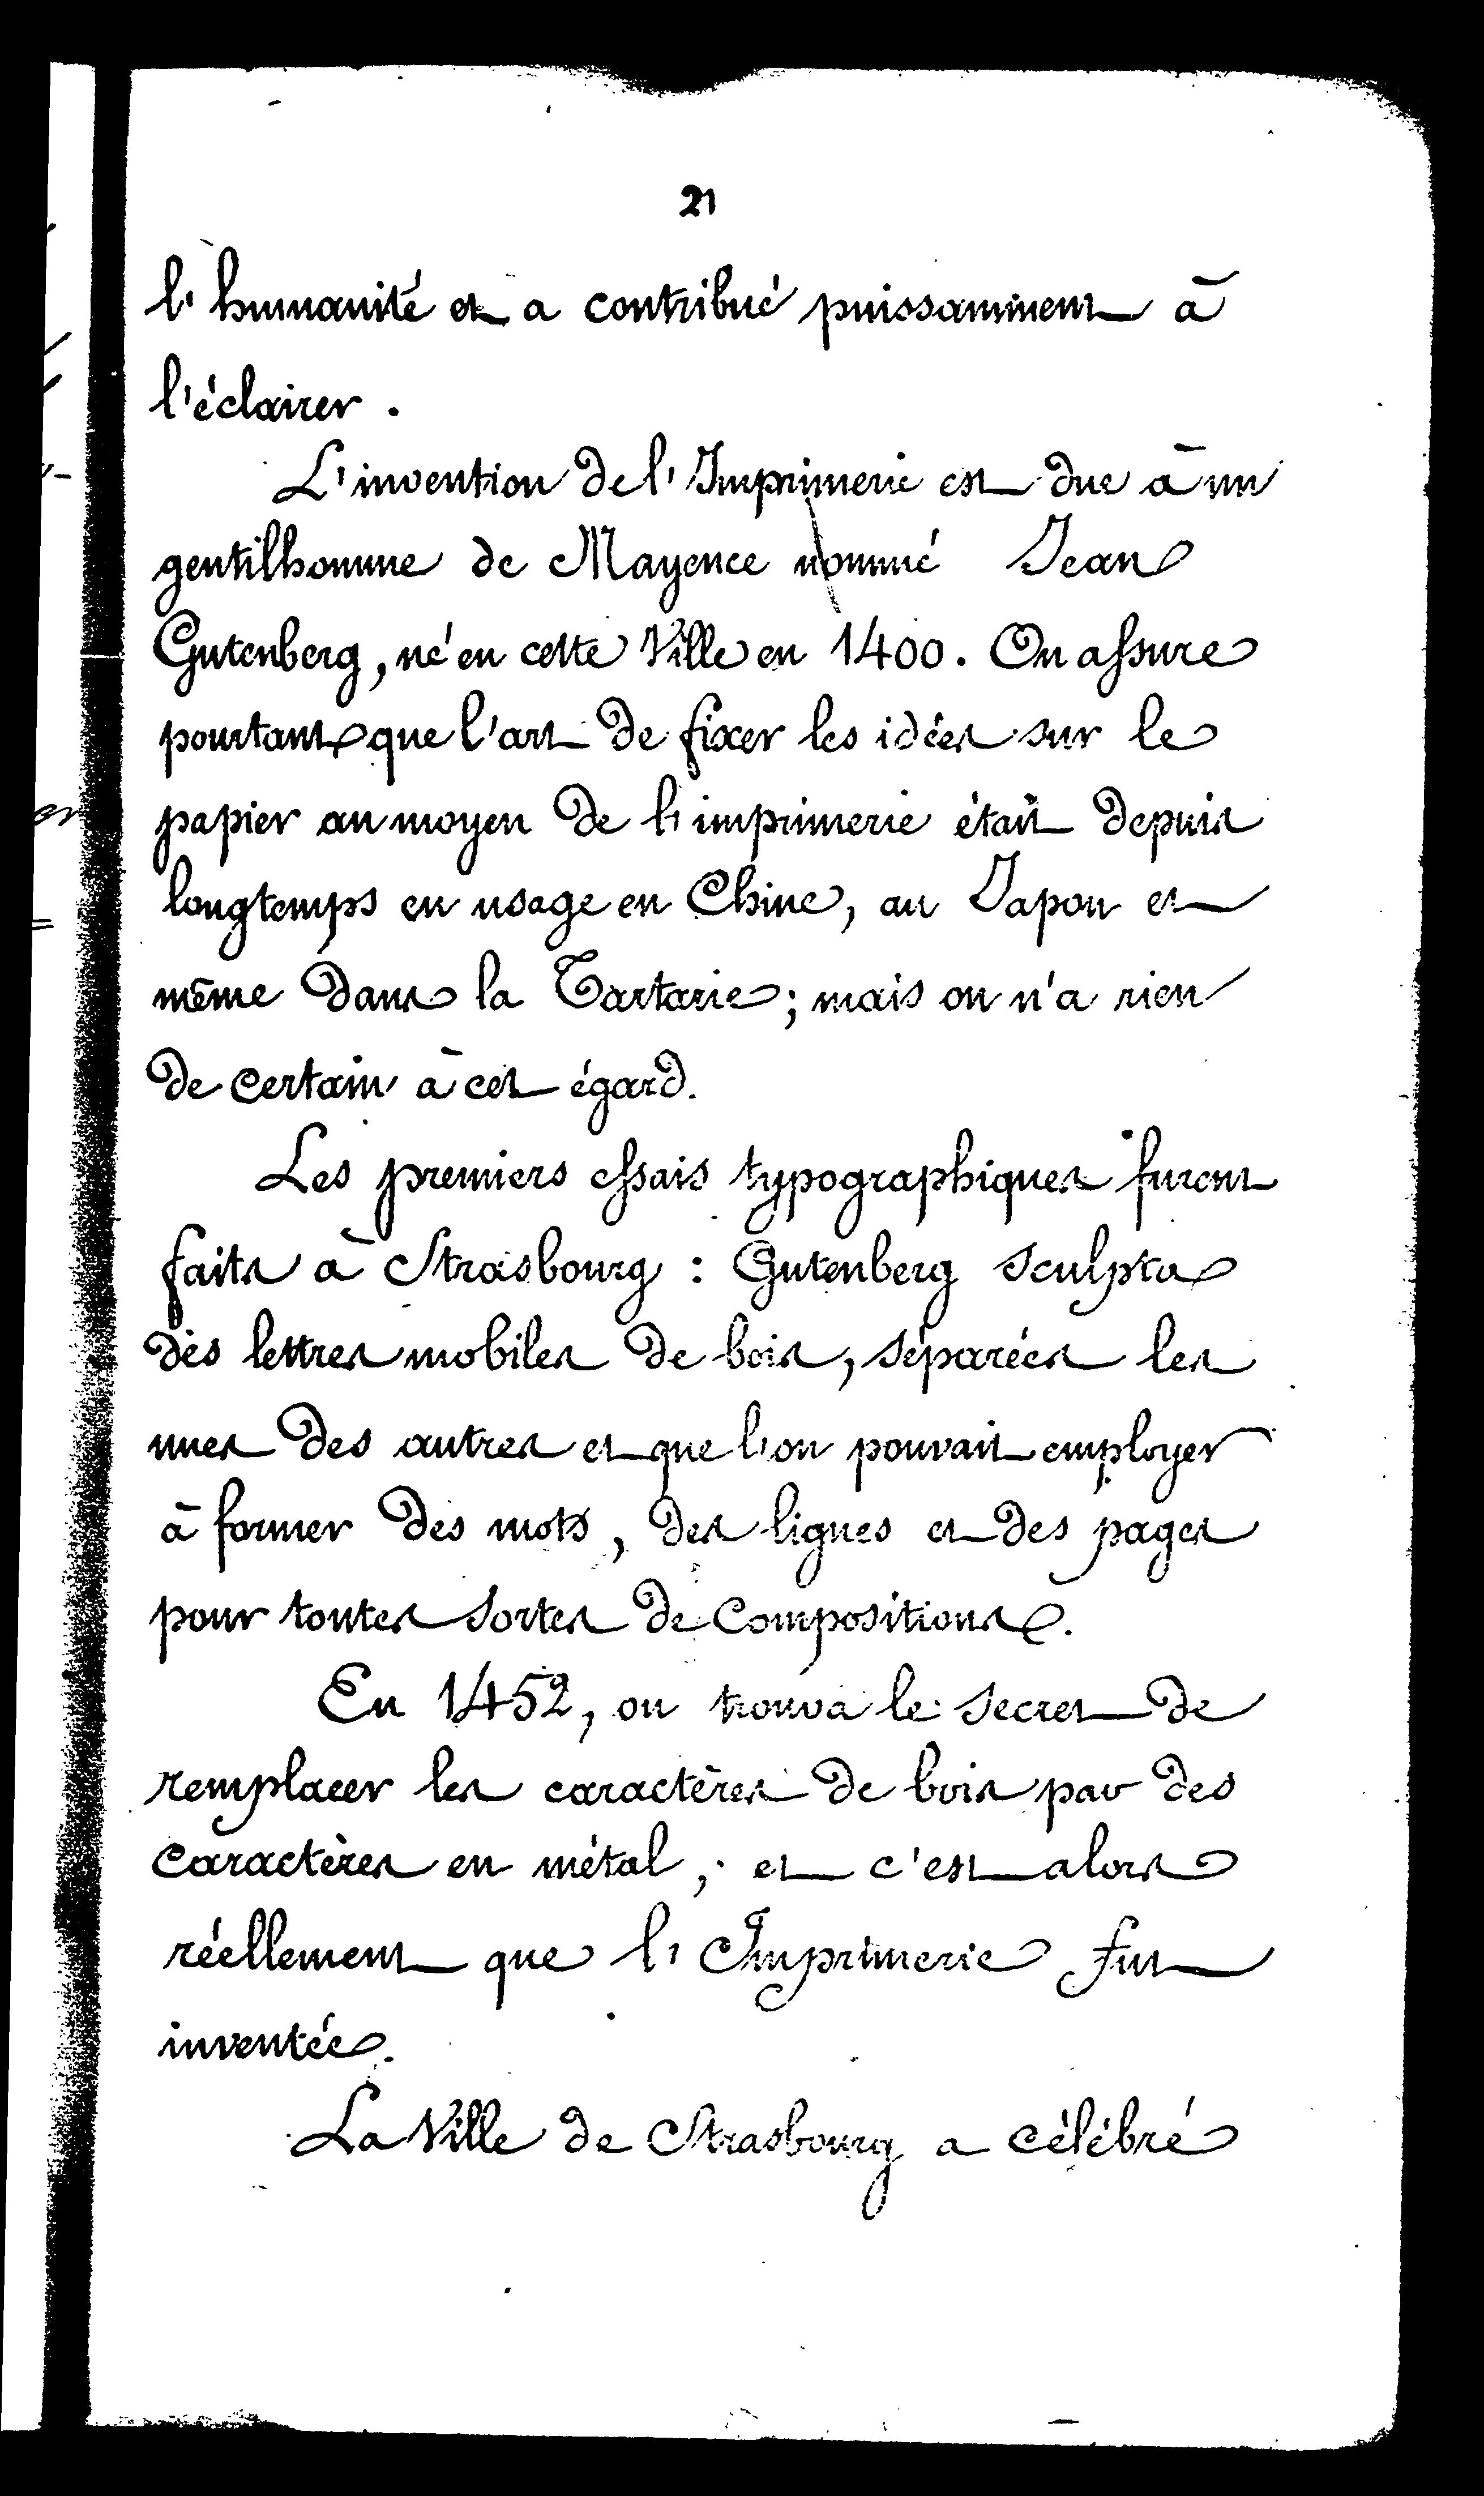 21
l'humanité et a contribué puissamment à
l'éclairer.
L'invention de l'Imprimerie est due à un
gentilhomme de Mayence nommé Jean
Gutenberg, né en cette Ville en 1400. On assure
pourtant que l'art de fixer les idées sur le
papier au moyen de l'imprimerie était depuis
longtemps en usage en Chine, au Japon et
même dans la Tartarie; mais on n'a rien
de certain à cet égard.
Les premiers essais typographiques furent
faits à Strasbourg : Gutenberg sculpta
des lettres mobiles de bois, séparées les
unes des autres et que l'on pouvait employer
à former des mots, des lignes et des pages
pour toutes sortes de Compositions.
En 1452, on trouva le secret de
remplacer les caractères de bois par des
caractères en métal, et c'est alors
réellement que l'Imprimerie fut
inventée.
La Ville de Strasbourg a célébré